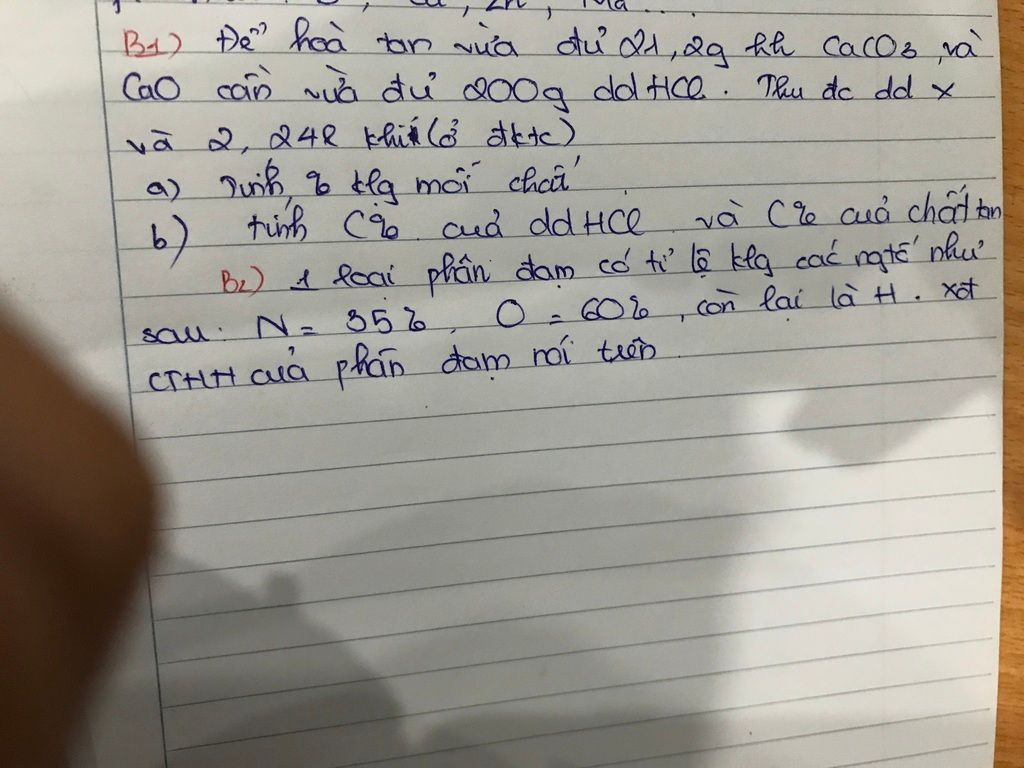 B1) Để hoà tan vừa đủ 21,2g hh CaCO3 và
CaO cần vừa đủ 200g ddHCl. Thu đc dd X
và 2,24l khí (ở đktc)
a) Tính % klg mỗi chất
b) tính C% của ddHCl và C% của chất tan
B2) 1 loại phân đạm có tỉ lệ klg các ngtố như
sau: N = 35%, O = 60%, còn lại là H. xđt
CTHH của phân đạm nói trên